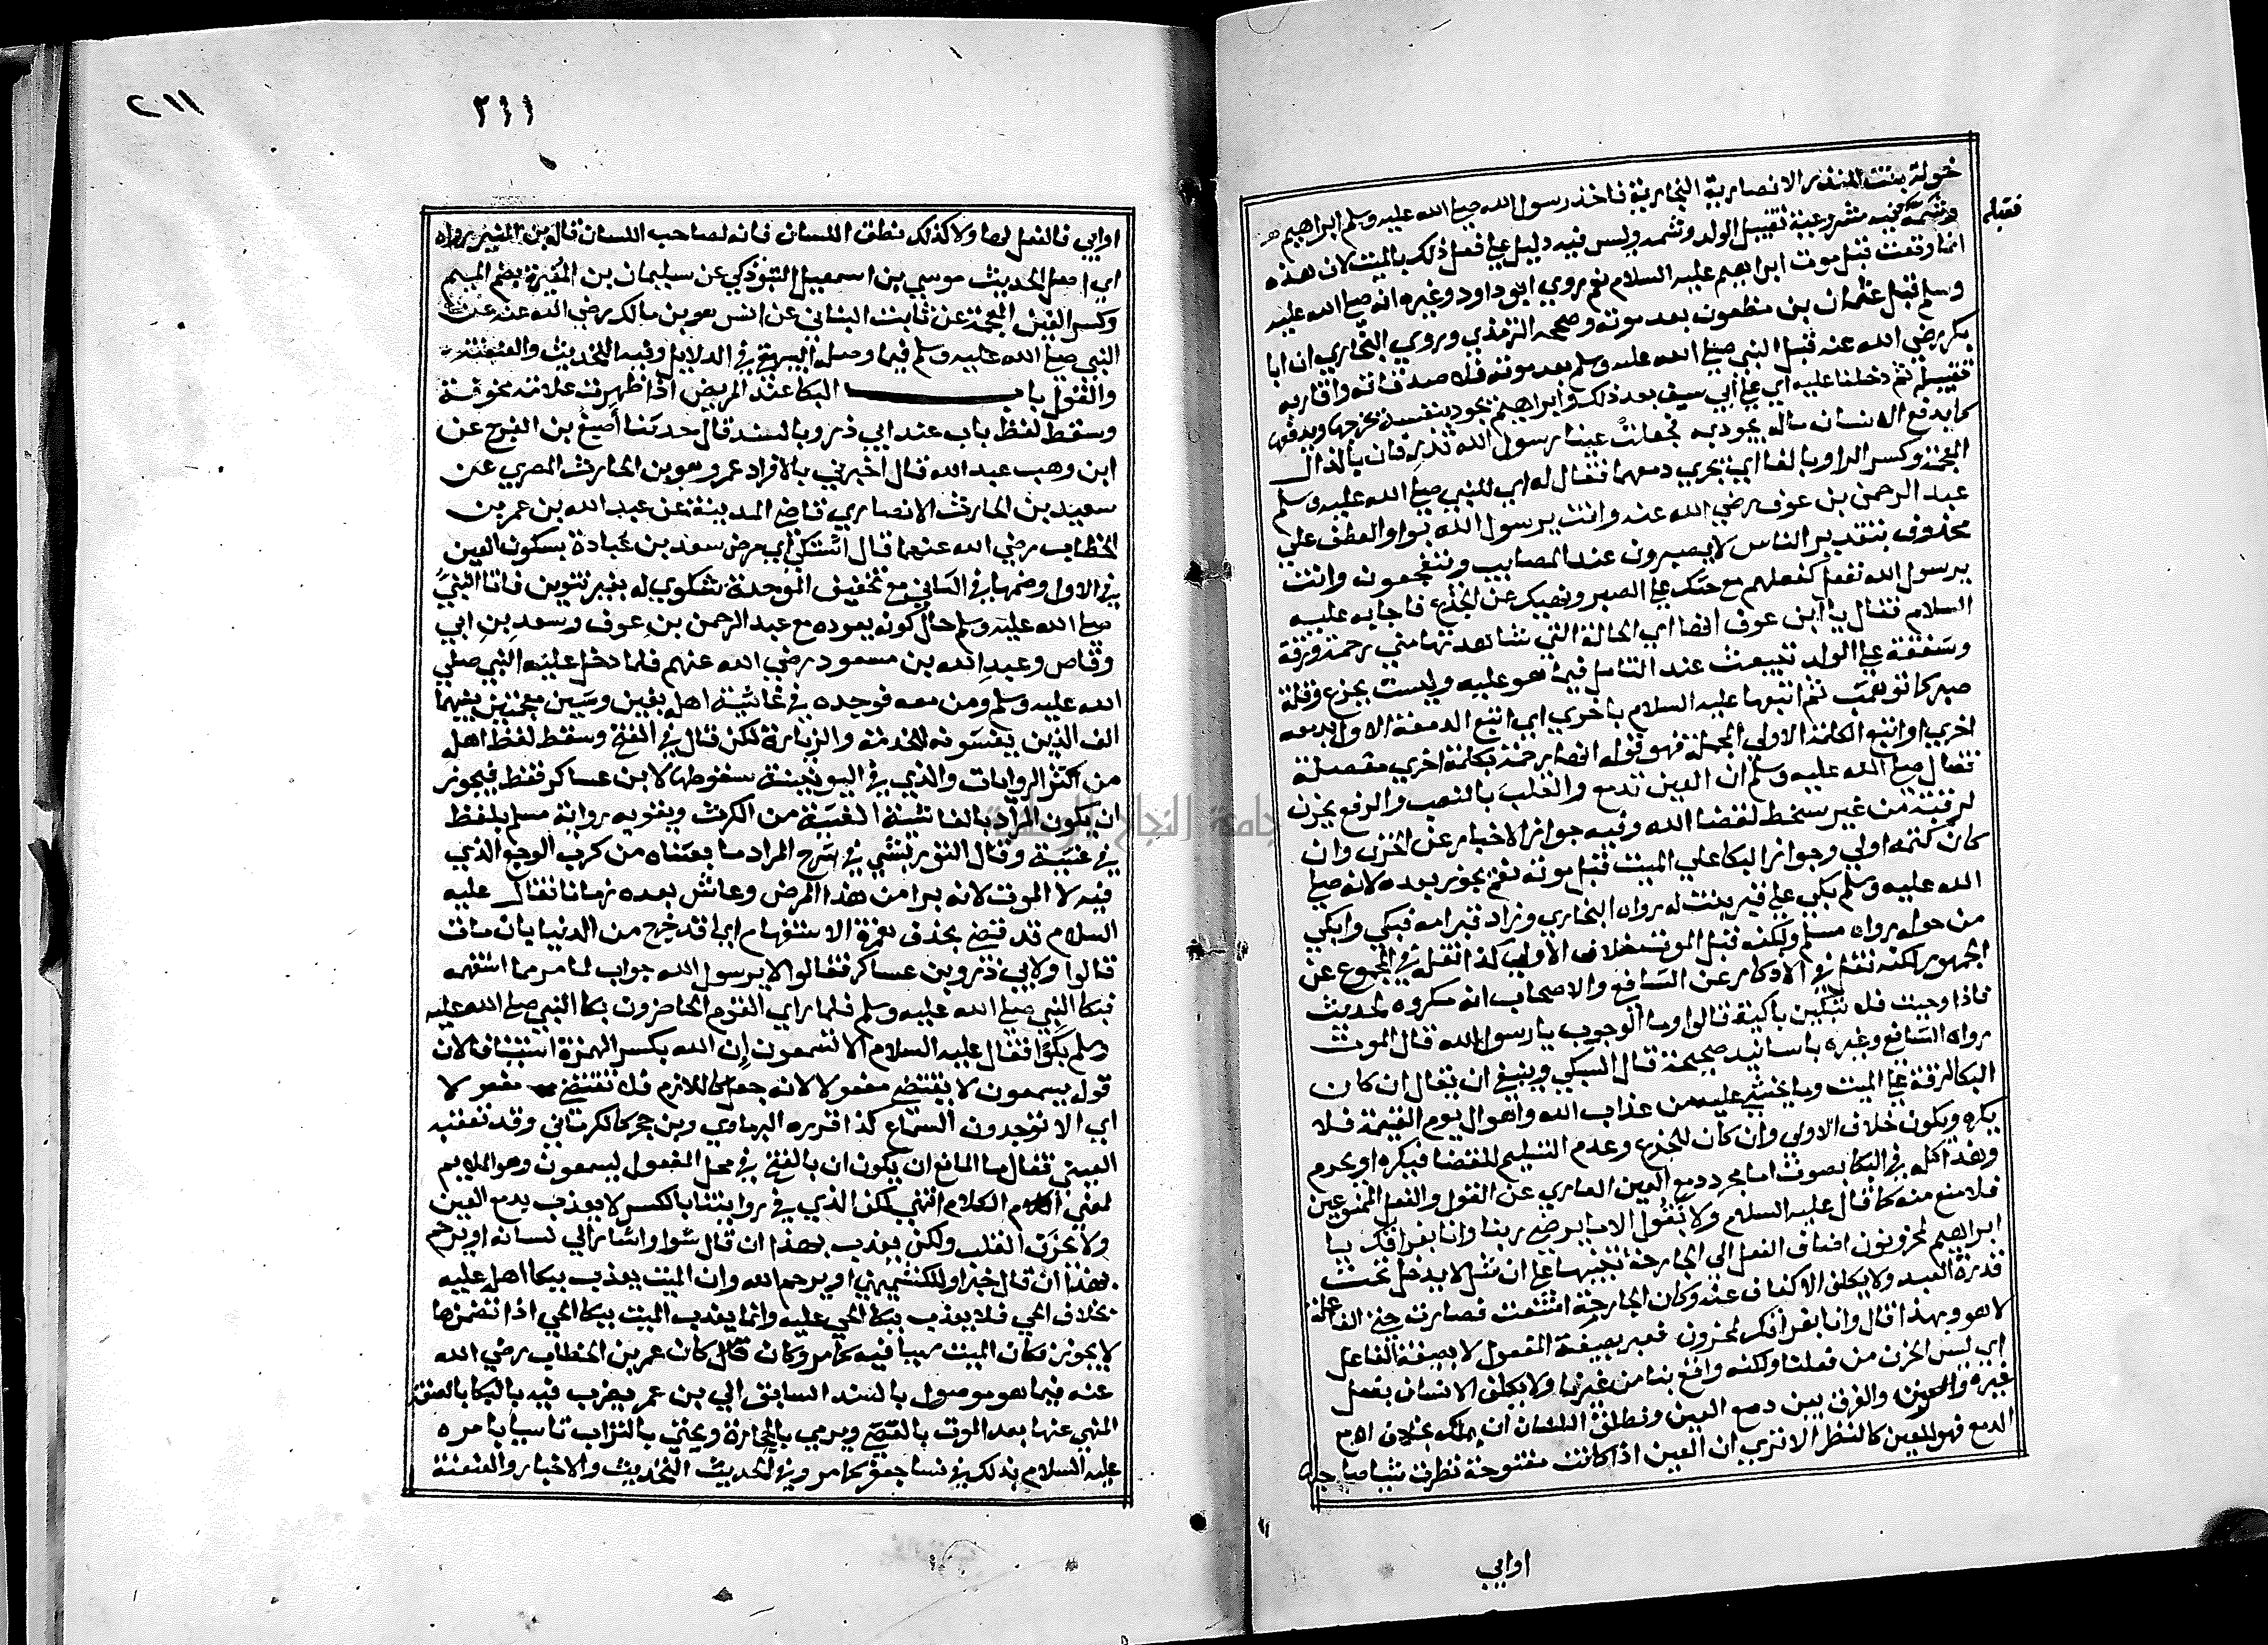 خولة بنت المنذر الانصارية النجارية فاخذ رسول الله صلى الله عليه وسلم ابراهيم
فقبله
وشمه فيه مشروعية تقبيل الولد وشمه وليس فيه دليل على فعل ذلك بالميت لان هذه
انما وقعت قبل موت ابراهيم عليه السلام نعم روي ابو داود وغيره انه صلى الله عليه
وسلم قبل عثمان بن مظعون بعد موته وصححه الترمذي وروي البخاري ان ابا
بكر رضي الله عنه قبل النبي صلى الله عليه وسلم بعد موته فلاصدقائه واقاربه
تقبيله ثم دخلنا عليه اي على ابي سيف بعد ذلك وابراهيم يجود بنفسه يخرجها ويدفعها
كما يدفع الانسان ماله يجود به فجعلت عينا رسول الله تذرفان بالذال
المعجمة وكسر الرا وبالفا اي يجري دمعهما فقال له اي للنبي صلى الله عليه وسلم
عبد الرحمن بن عوف رضي الله عنه وانت يرسول الله بواو العطف على
محذوف بتقدير الناس لا يصبرون عند المصايب ويتفجعون وانت
يرسول الله تفعل كفعلهم مع حثك على الصبر ونهيك عن الجزع فاجابه عليه
السلام فقال يا ابن عوف انها اي الحالة التي شاهدتها مني رحمة ورقة
وشفقة على الولد تنبعث عند التامل فيما هو عليه وليست بجزع وقلة
صبر كما توهمت ثم اتبعها عليه السلام باخري اي اتبع الدمعة الاولى بدمعه
اخري او اتبع الكلمة الاولي المجملة فهو قوله انها رحمة بكلمة اخري مفصلة
فقال صلى الله عليه وسلم ان العين تدمع والقلب بالنصب والرفع يحزن
لرقته من غير سخط لقضا الله وفيه جواز الاخبار عن الحزن وان
كان كتمه اولي وجواز البكا علي الميت قبل موته نعم يجوز بعده لانه صلى
الله عليه وسلم بكي على قبر بنت له رواه البخاري وزار قبر امه فبكي وابكي
من حوله رواه مسلم ولكنه قبل الموت خلاف الاولي كذا نقله في المجموع عن
الجمهور لكنه نقل في الاذكار عن الشافعي والاصحاب انه مكروه لحديث
فاذا وجبت فلا تبكين باكية قالوا وما الوجوب يا رسول الله قال الموت
رواه الشافعي وغيره باسانيد صحيحة قال السبكي وينبغي ان يقال ان كان
البكا لرقة على الميت وما يخشى عليه من عذاب الله واهوال يوم القيمة فلا
يكره ويكون خلاف الاولي وان كان للجزع وعدم التسليم للقضا فيكره او يحرم
وهذا كله في البكا بصوت اما مجرد دمع العين العاري عن القول والفعل الممنوعين
فلا منع منه كما قال عليه السلام ولا نقول الا ما يرضي ربنا وانا بفراقك يا
ابراهيم لمحزونون اضاف الفعل الى الجارحة تنبيها على ان مثل لا يدخل تحت
قدرة العبد ولا يكلف الانكفاف عنه وكان الجارحة امتنعت فصارت هي الفاعلة
لا هو وبهذا قال وانا بفراقك لمحزون فعبر بصيغة المفعول لا بصيغة الفاعل
اي ليس الحزن من فعلنا ولكنه واقع بنا من غيرنا ولا يكلف الانسان بفعل
غيره والفرق بين دمع العين ونطق اللسان ان يملك بخلاف
الدمع فهو للعين كالنظر الا تري ان العين اذا كانت مفتوحة نظرت شا صاحبها
اوابي
٢١١
٢١١
اوابي فالفعل لها ولا كذلك نطق اللسان فانه لصاحب اللسان قاله بن المنير رواه
اي اصل الحديث موسي بن اسمعيل التبوذكي عن سليمان بن المغيرة بضم الميم
وكسر الغين المعجمة عن ثابت البناني عن انس هو بن مالك رضي الله عنه عن
النبي صلى الله عليه وسلم فيما وصله البيهقي في الدلايل وفيه التحديث والعنعنة
والقول باب البكا عند المريض اذا ظهرت علامة مخوفة
وسقط لفظ باب عند ابي ذر وبالسند قال حدثنا اصبغ بن الفرج عن
ابن وهب عبد الله قال اخبرني بالافراد عمرو هو بن الحارث المصري عن
سعيد بن الحارث الانصاري قاضي المدينة عن عبد الله بن عمر بن
الخطاب رضي الله عنهما قال اشتكى اي مرض سعد بن عبادة بسكون العين
في الاول وضمها في الثاني مع تخفيف الموحدة شكوي له بغير تنوين فاتا النبي
صلى الله عليه وسلم حال كونه يعوده مع عبد الرحمن بن عوف وسعد بن ابي
وقاص وعبد الله بن مسعود رضي الله عنهم فلما دخل عليه النبي صلي
الله عليه وسلم ومن معه فوجده في غاشية اهله بغين وشين معجمتين بينهما
الف الذين يغشونه للخدمة والزيارة لكن قال في الفتح وسقط لفظ اهله
من اكثر الروايات والذي في اليونينية سقوطها لابن عساكر فقط فيجوز
ان يكون المراد بالغاشية الغشية من الكرب ويقويه رواية مسلم بلفظ
في غشية وقال التوربشتي في شرح المراد ما يغشاه من كرب الوجع الذي
فيه لا الموت لانه برا من هذا المرض وعاش بعده زمانا فقال عليه
السلام قد قضي بحذف همزة الاستفهام اي اقد خرج من الدنيا بان مات
قالوا ولابي ذر وبن عساكر فقالوا لا يرسول الله جواب لما مر مما استفهمه
فبكا النبي صلى الله عليه وسلم فلما راي القوم الحاضرون بكا النبي صلى الله عليه
وسلم بكوا فقال عليه السلام الا تسمعون ان الله بكسر الهمزة استينافا لان
قوله يسمعون لا يقتضي مفعولا لانه جعل كاللازم فلا تقتضي مفعولا
اي الا توجدون السماع كذا قرره البرماوي وبن حجر كالكرماني وقد تعقبه
العيني فقال ما المانع ان يكون ان بالفتح في محل المفعول ليسمعون وهو الملايم
لمعني الكلام انتهي لكن الذي في روايتنا بالكسر لا يعذب بدمع العين
ولا بحزن القلب ولكن يعذب بهذا ان قال سوا واشار الي لسانه او يرحم
بهذا ان قال خيرا وللكشميهني او يرحم الله وان الميت يعذب ببكا اهله عليه
بخلاف الحي فلا يعذب ببكا الحي عليه وانما يعذب الميت ببكا الحي اذا تضمن ما
لا يجوز وكان الميت سببا فيه كما مر وكان كان عمر بن الخطاب رضي الله
عنه فيما هو موصول بالسند السابق الي بن عمر يضرب فيه بالبكا بالصفة
المنهي عنها بعد الموت بالعصي ويرمي بالحجارة ويحثي بالتراب تاسيا بامره
عليه السلام بذلك في نسا جعفر كما مر وفي الحديث التحديث والاخبار والعنعنة
جامعة النجاح الوطنية